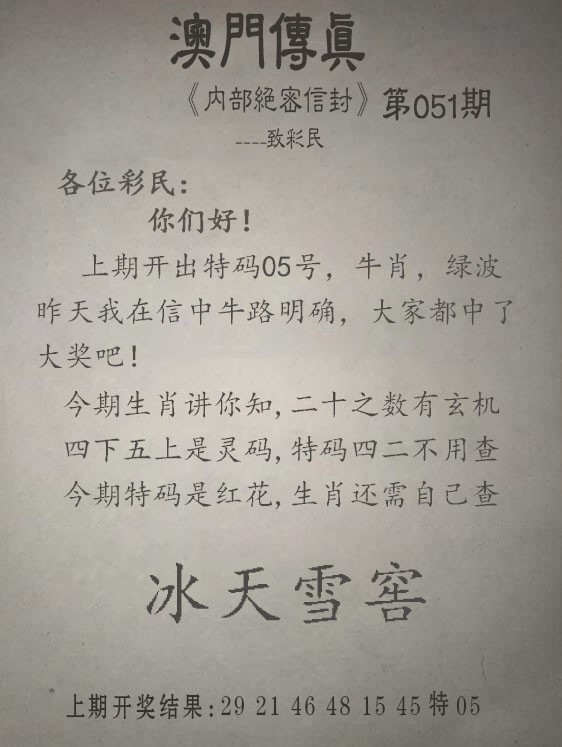 澳門傳眞
《内部絕密信封》第051期
----致彩民
各位彩民：
你们好！
上期开出特码05号，牛肖，绿波
昨天我在信中牛路明确，大家都中了
大奖吧！
今期生肖讲你知,二十之数有玄机
四下五上是灵码,特码四二不用查
今期特码是红花,生肖还需自己查
冰天雪窖
上期开奖结果:29 21 46 48 15 45 特 05